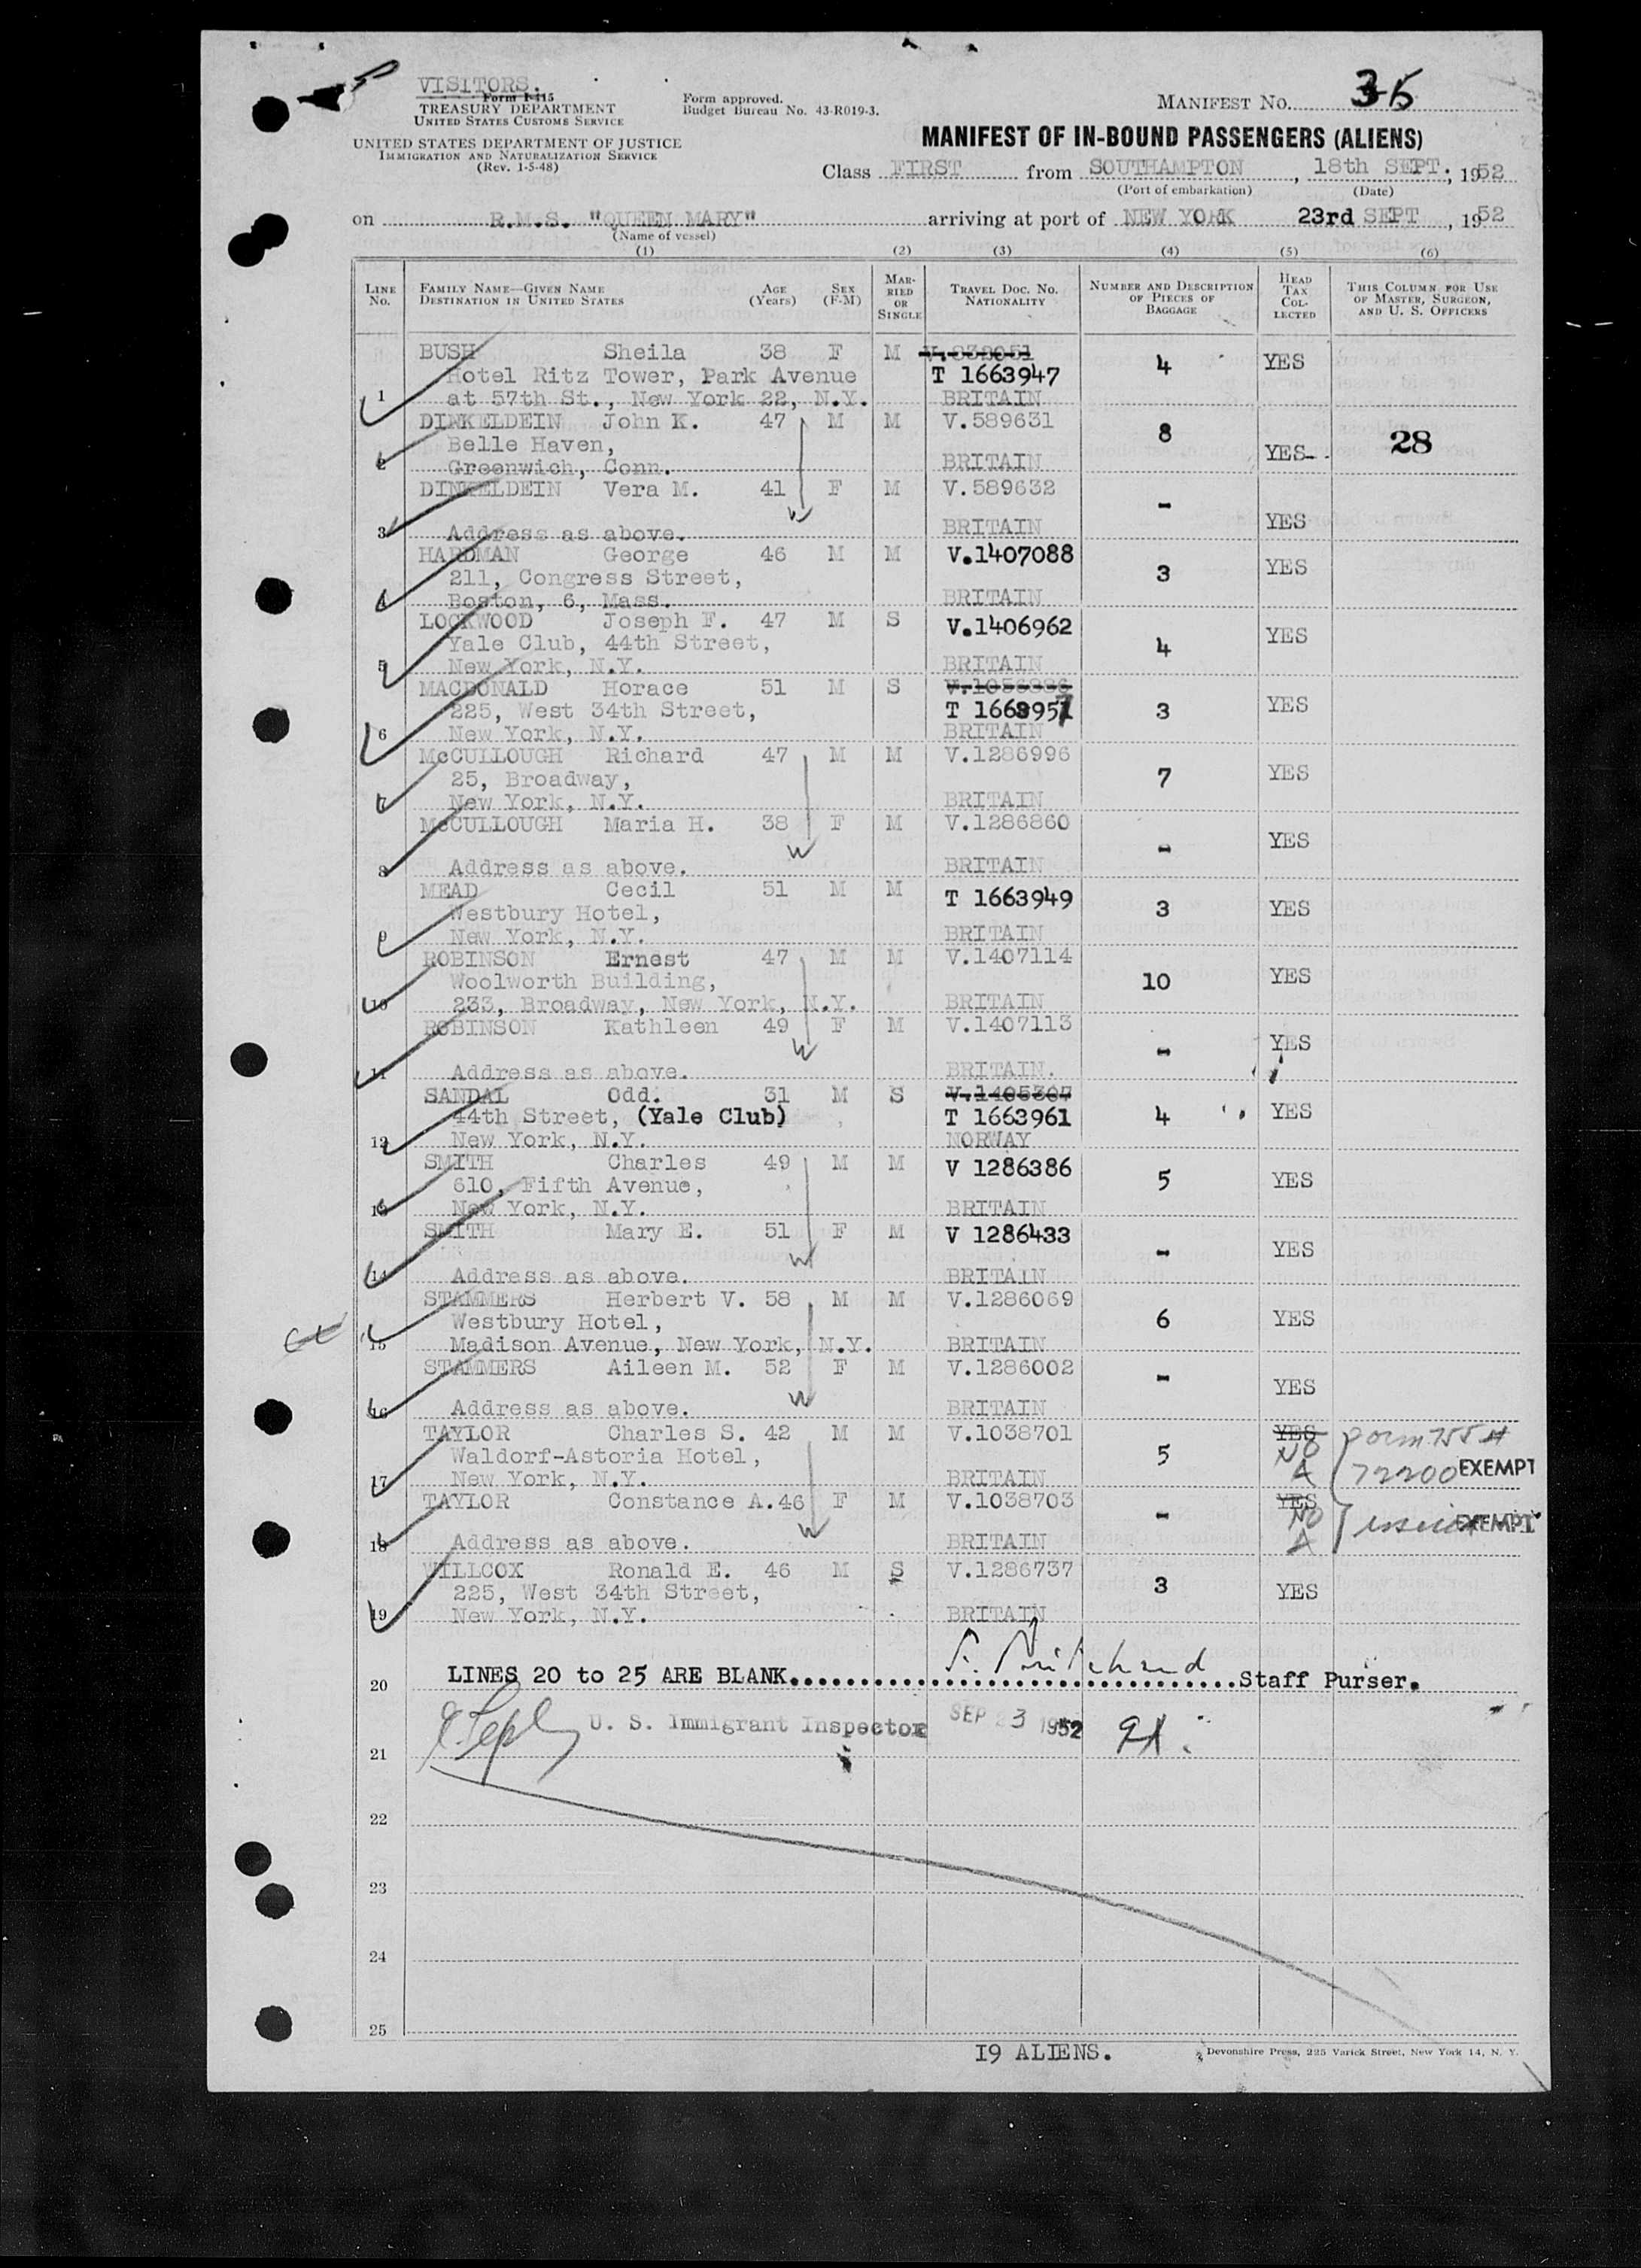 VISITORS.
Form I-415
TREASURY DEPARTMENT
UNITED STATES CUSTOMS SERVICE
UNITED STATES DEPARTMENT OF JUSTICE
IMMIGRATION AND NATURALIZATION SERVICE
(Rev. 1-5-48)
Form approved.
Budget Bureau No. 43-R019-3.
MANIFEST No. 35
MANIFEST OF IN-BOUND PASSENGERS (ALIENS)
Class FIRST from SOUTHAMPTON, 18th SEPT., 1952
(Port of embarkation) (Date)
on R.M.S. "QUEEN MARY" arriving at port of NEW YORK 23rd SEPT, 1952
(Name of vessel)
(1) (2) (3) (4) (5) (6)
LINE No. FAMILY NAME—GIVEN NAME DESTINATION IN UNITED STATES AGE (Years) SEX (F-M) MARRIED OR SINGLE TRAVEL DOC. NO. NATIONALITY NUMBER AND DESCRIPTION OF PIECES OF BAGGAGE HEAD TAX COLLECTED THIS COLUMN FOR USE OF MASTER, SURGEON, AND U. S. OFFICERS
BUSH Sheila 38 F M
Hotel Ritz Tower, Park Avenue T 1663947 4 YES
1 at 57th St., New York 22, N.Y. BRITAIN
DINKELDEIN John K. 47 M M V.589631
Belle Haven, 8 YES 28
2 Greenwich, Conn. BRITAIN
DINKELDEIN Vera M. 41 F M V.589632
- YES
3 Address as above. BRITAIN
HARDMAN George 46 M M V.1407088
211, Congress Street, 3 YES
4 Boston, 6, Mass. BRITAIN
LOCKWOOD Joseph F. 47 M S V.1406962
Yale Club, 44th Street, 4 YES
5 New York, N.Y. BRITAIN
MACDONALD Horace 51 M S
225, West 34th Street, T 1663957 3 YES
6 New York, N.Y. BRITAIN
McCULLOUGH Richard 47 M M V.1286996
25, Broadway, 7 YES
7 New York, N.Y. BRITAIN
McCULLOUGH Maria H. 38 F M V.1286860
W - YES
8 Address as above. BRITAIN
MEAD Cecil 51 M M T 1663949
Westbury Hotel, 3 YES
9 New York, N.Y. BRITAIN
ROBINSON Ernest 47 M M V.1407114
Woolworth Building, 10 YES
10 233, Broadway, New York, N.Y. BRITAIN
ROBINSON Kathleen 49 F M V.1407113
W - YES
11 Address as above. BRITAIN.
SANDAL Odd. 31 M S V.1405307
44th Street, (Yale Club) T 1663961 4 YES
12 New York, N.Y. NORWAY
SMITH Charles 49 M M V 1286386
610, Fifth Avenue, 5 YES
13 New York, N.Y. BRITAIN
SMITH Mary E. 51 F M V 1286433
W - YES
14 Address as above. BRITAIN
STAMMERS Herbert V. 58 M M V.1286069
Westbury Hotel, 6 YES
15 Madison Avenue, New York, N.Y. BRITAIN
STAMMERS Aileen M. 52 F M V.1286002
W - YES
16 Address as above. BRITAIN
TAYLOR Charles S. 42 M M V.1038701 YES
Waldorf-Astoria Hotel, 5 NO
17 New York, N.Y. BRITAIN A 72200 EXEMPT
TAYLOR Constance A. 46 F M V.1038703 YES
W - NO EXEMPT
18 Address as above. BRITAIN A
WILLCOX Ronald E. 46 M S V.1286737
225, West 34th Street, 3 YES
19 New York, N.Y. BRITAIN
20 LINES 20 to 25 ARE BLANK. Staff Purser.
U. S. Immigrant Inspector SEP 23 1952
21
22
23
24
25
19 ALIENS.
Devonshire Press, 225 Varick Street, New York 14, N. Y.